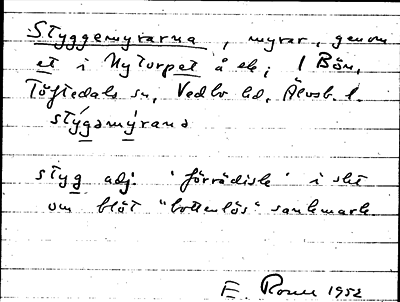 Styggemyrarna, myrar, genom
et i Nytorpet å ek; 1 Bön,
Töftedals sn, Vedbo hd, Älvsb. l.
stýgəmýrana
styg adj. 'förrädisk' i sht
om blöt "bottenlös" sankmark.
1952